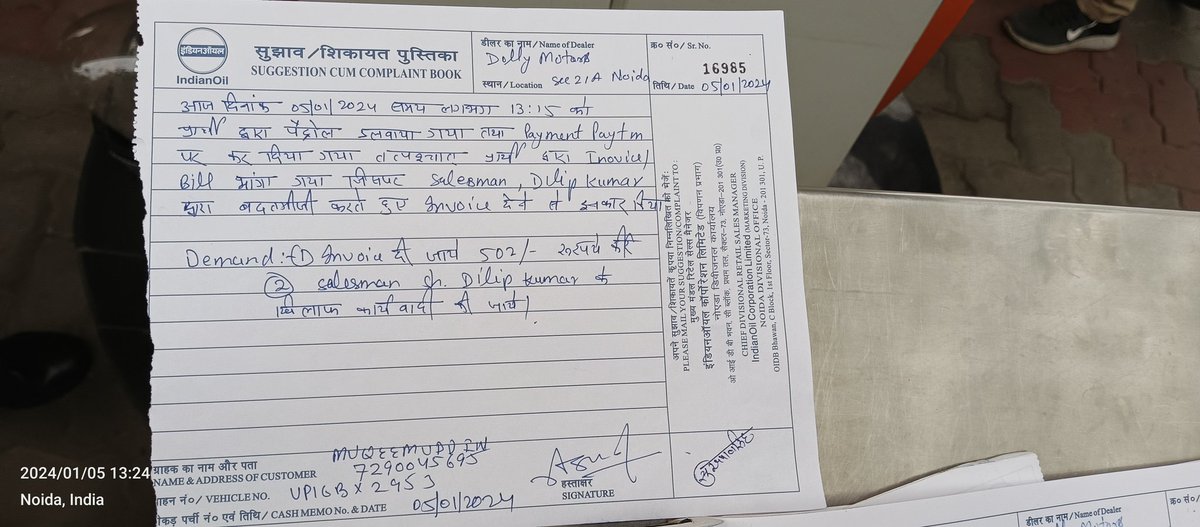 इंडियनऑयल
IndianOil
सुझाव/शिकायत पुस्तिका
SUGGESTION CUM COMPLAINT BOOK
डीलर का नाम/Name of Dealer
Dolly Motors
स्थान/Location Sec 21A Noida
क्र० सं०/Sr. No.
16985
तिथि/Date 05/01/2024
आज दिनांक 05/01/2024 समय लगभग 13:15 को
प्रार्थी द्वारा पैट्रोल डलवाया गया तथा Payment Paytm
पर कर दिया गया तत्पश्चात प्रार्थी द्वारा Inovice/
Bill मांगा गया जिसपर Salesman, Dilip Kumar
द्वारा बदतमीजी करते हुए Invoice देने से इनकार किया
Demand:- ① Invoice दी जाये 502/- रूपये की
② Salesman Sh. Dilip Kumar के
खिलाफ कार्यवाही की जाये।
अपने सुझाव/शिकायत कृपया निम्नलिखित को भेजें:
PLEASE MAIL YOUR SUGGESTION/COMPLAINT TO:
मुख्य मंडल रिटेल सेल्स मैनेजर
इंडियनऑयल कॉर्पोरेशन लिमिटेड (विपणन प्रभाग)
नोएडा डिवीजनल कार्यालय
ओ आई डी बी भवन, सी ब्लॉक, प्रथम तल, सेक्टर-73, नोएडा-201 301(उ० प्र०)
CHIEF DIVISIONAL RETAIL SALES MANAGER
IndianOil Corporation Limited (MARKETING DIVISION)
NOIDA DIVISIONAL OFFICE
OIDB Bhawan, C Block, 1st Floor, Sector-73, Noida - 201 301, U. P.
ग्राहक का नाम और पता
NAME & ADDRESS OF CUSTOMER
MUQEEMUDDIN
7290045695
वाहन नं०/VEHICLE NO. UP16BX2953
रोकड़ पर्ची नं० एवं तिथि/CASH MEMO No. & DATE 05/01/2024
हस्ताक्षर
SIGNATURE
2024/01/05 13:24
Noida, India
डीलर का नाम/Name of Dealer
Motors
क्र० सं०/